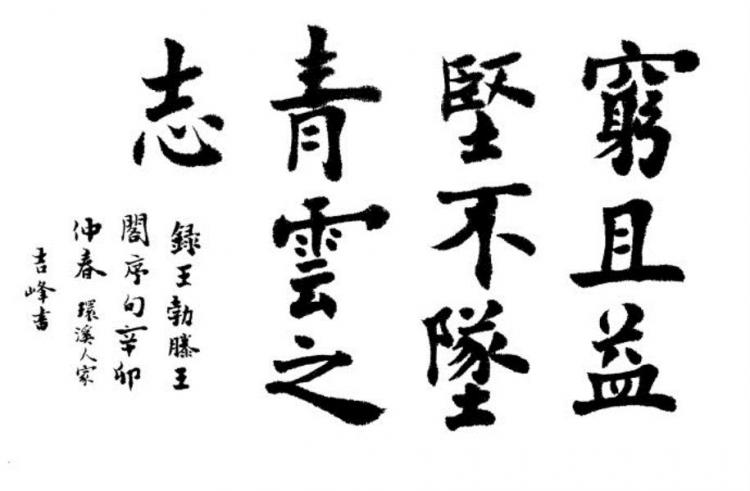 窮且益
堅不墜
青雲之
志
録王勃滕王
閣序句辛卯
仲春環溪人家
吉峰書